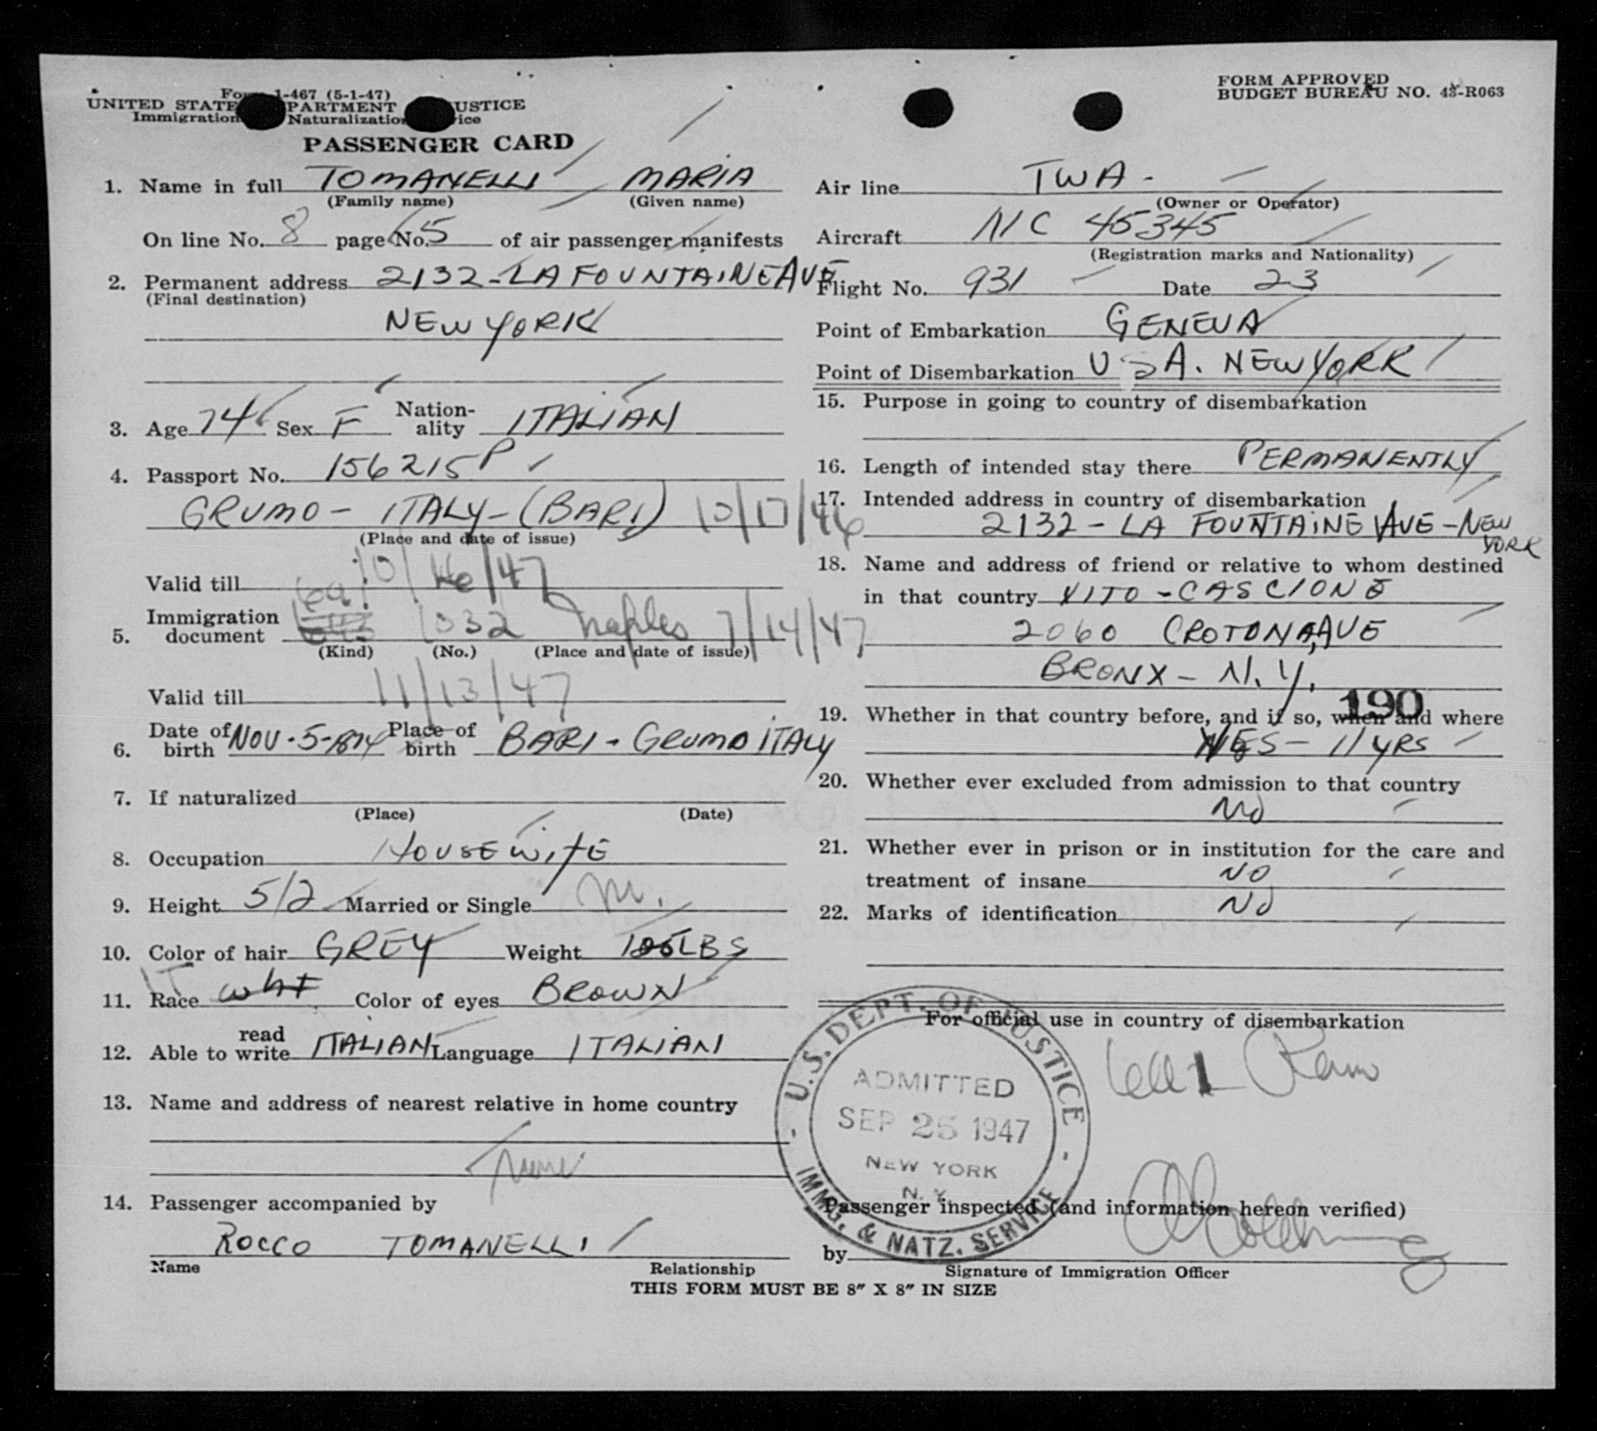 Form I-467 (5-1-47)
UNITED STATES DEPARTMENT OF JUSTICE
Immigration and Naturalization Service
PASSENGER CARD
FORM APPROVED
BUDGET BUREAU NO. 43-R063
1. Name in full TOMANELLI MARIA
(Family name) (Given name)
On line No. 8 page No. 5 of air passenger manifests
2. Permanent address 2132-LA FOUNTAINE AVE
(Final destination)
NEW YORK
3. Age 74 Sex F Nationality ITALIAN
4. Passport No. 156215P
GRUMO - ITALY - (BARI) 10/17/46
(Place and date of issue)
Valid till 10/16/47
5. Immigration document 1032 Naples 7/14/47
(Kind) (No.) (Place and date of issue)
Valid till 11/13/47
6. Date of birth NOV-5-1874 Place of birth BARI - GRUMO ITALY
7. If naturalized
(Place) (Date)
8. Occupation HOUSEWIFE
9. Height 5/2 Married or Single M.
10. Color of hair GREY Weight LBS
11. Race Wht IT Color of eyes BROWN
12. Able to read write ITALIAN Language ITALIAN
13. Name and address of nearest relative in home country
14. Passenger accompanied by
ROCCO TOMANELLI
Name Relationship
Air line TWA-
(Owner or Operator)
Aircraft N/C 45345
(Registration marks and Nationality)
Flight No. 931 Date 23
Point of Embarkation GENEVA
Point of Disembarkation U S A. NEW YORK
15. Purpose in going to country of disembarkation
16. Length of intended stay there PERMANENTLY
17. Intended address in country of disembarkation
2132 - LA FOUNTAINE AVE - NEW YORK
18. Name and address of friend or relative to whom destined
in that country VITO - CASCIONE
2060 CROTONA, AVE
BRONX - N.Y.
190
19. Whether in that country before, and if so, when and where
YES - 11 YRS
20. Whether ever excluded from admission to that country
No
21. Whether ever in prison or in institution for the care and
treatment of insane NO
22. Marks of identification NO
For official use in country of disembarkation
U.S. DEPT. OF JUSTICE
ADMITTED
SEP 25 1947
NEW YORK
N. Y.
IMMG. & NATZ. SERVICE
Passenger inspected (and information hereon verified)
by
Signature of Immigration Officer
THIS FORM MUST BE 8″ X 8″ IN SIZE